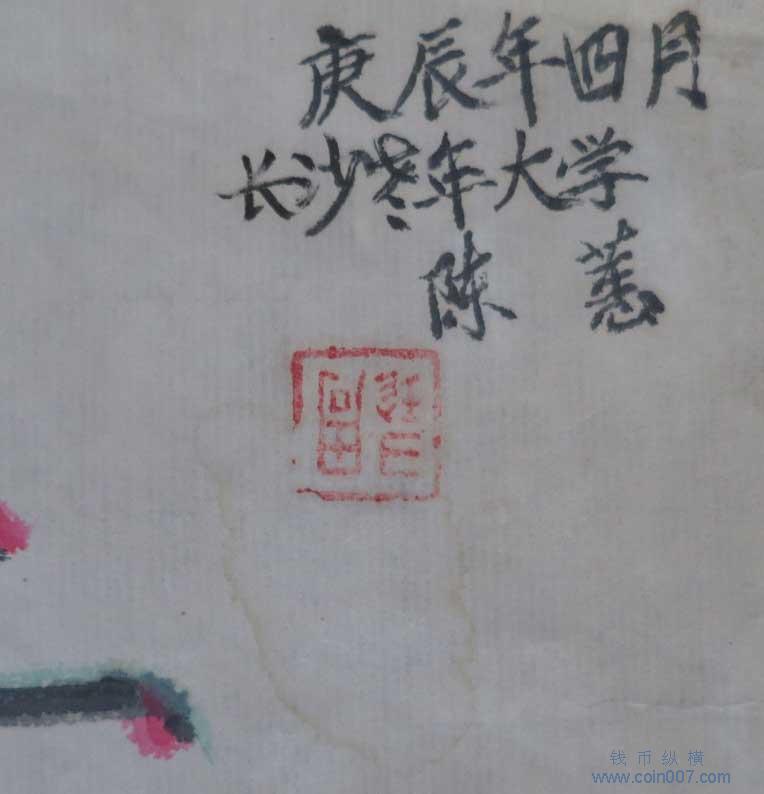 庚辰年四月
长沙老年大学
陈 蕙
钱币纵横
www.coin007.com